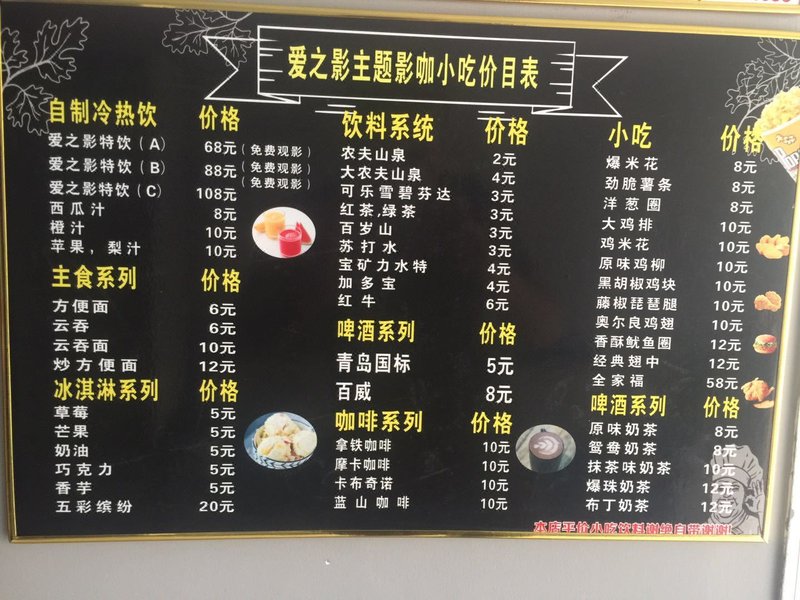 爱之影主题影咖小吃价目表
自制冷热饮 价格
爱之影特饮(A) 68元(免费观影)
爱之影特饮(B) 88元(免费观影)
爱之影特饮(C) 108元(免费观影)
西瓜汁 8元
橙汁 10元
苹果,梨汁 10元
主食系列 价格
方便面 6元
云吞 6元
云吞面 10元
炒方便面 12元
冰淇淋系列 价格
草莓 5元
芒果 5元
奶油 5元
巧克力 5元
香芋 5元
五彩缤纷 20元
饮料系统 价格
农夫山泉 2元
大农夫山泉 4元
可乐雪碧芬达 3元
红茶,绿茶 3元
百岁山 3元
苏打水 4元
宝矿力水特 4元
加多宝 4元
红牛 6元
啤酒系列 价格
青岛国标 5元
百威 8元
咖啡系列 价格
拿铁咖啡 10元
摩卡咖啡 10元
卡布奇诺 10元
蓝山咖啡 10元
小吃 价格
爆米花 8元
劲脆薯条 8元
洋葱圈 8元
大鸡排 10元
鸡米花 10元
原味鸡柳 10元
黑胡椒鸡块 10元
藤椒琵琶腿 10元
奥尔良鸡翅 10元
香酥鱿鱼圈 12元
经典翅中 12元
全家福 58元
啤酒系列 价格
原味奶茶 8元
鸳鸯奶茶 8元
抹茶味奶茶 10元
爆珠奶茶 12元
布丁奶茶 12元
本店平价小吃饮料谢绝自带谢谢!